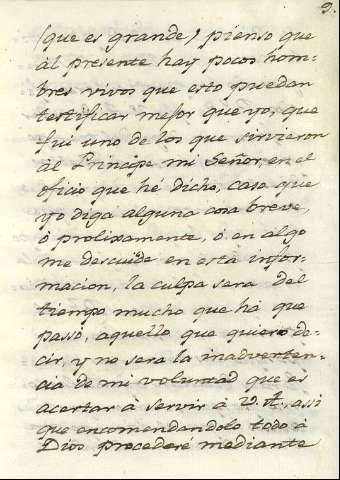 9.
(que es grande) pienso que
al presente hay pocos hom-
bres vivos que esto puedan
testificar mejor que yo, que
fui uno de los que sirvieron
àl Principe mi Señor, en el
oficio que hé dicho, caso que
yo diga alguna cosa breve,
ó prolixamente, ó en algo
me descuide en està infor-
macion, la culpa sera del
tiempo mucho que hà que
passò, aquello que quiero de-
cir, y no sera la inadverten-
cia de mi voluntad que es
acertar à servir à V. A., assi
que encomendandolo todo à
Dios procederé mediante